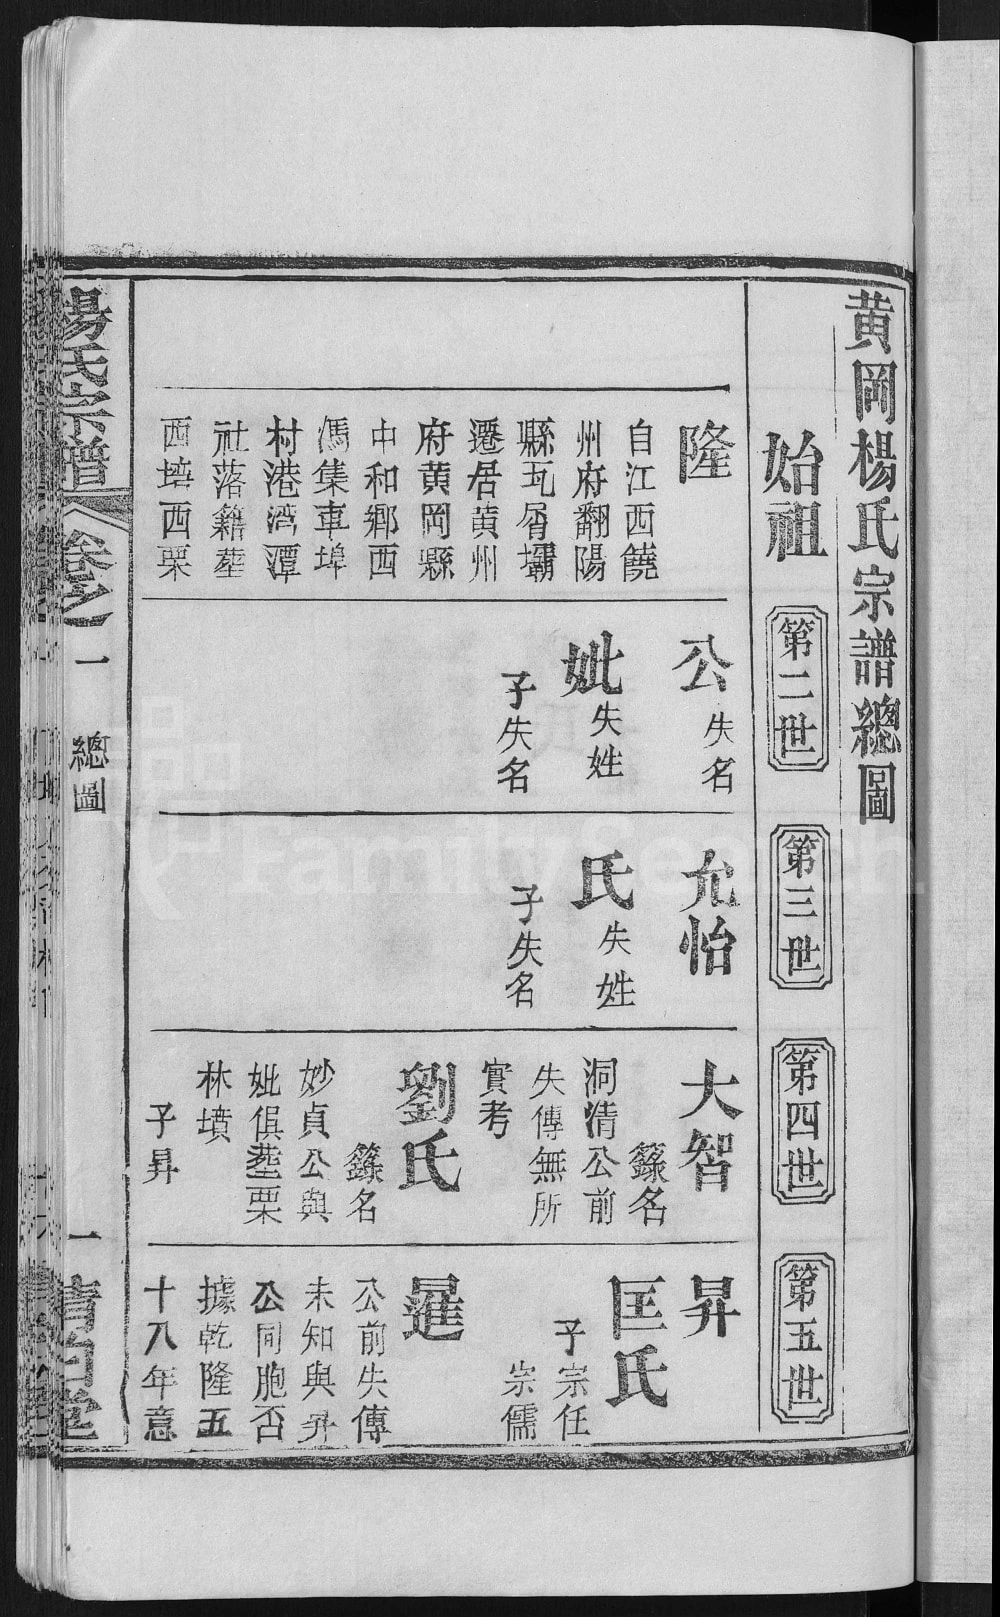 黄岡楊氏宗譜總圖
始祖
第二世
第三世
第四世
第五世
隆
自江西饒
州府翻陽
縣瓦屑壩
遷居黄州
府黄岡縣
中和鄉西
馮集車埠
村港湾潭
社落籍塟
西培西栗
公失名
妣失姓
子失名
允怡
氏失姓
子失名
大智
籙名
洞清公前
失傳無所
實考
劉氏
籙名
妙貞公與
妣俱塟栗
林墳
子昇
昇
匡氏
子宗任
宗儒
暹
公前失傳
未知與昇
公同胞否
據乾隆五
十八年意
楊氏宗譜
卷之一
總圖
一
清白堂